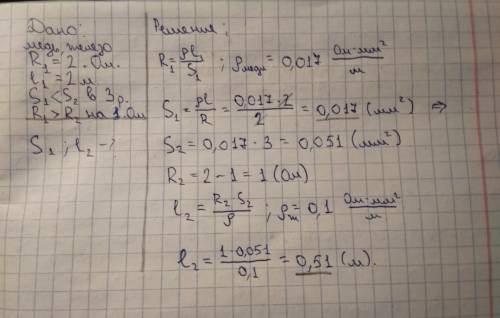 Дано:
медь, железо
R₁ = 2 · Ом.
l₁ = 2 м
S₁ < S₂ в 3 р.
R₁ > R₂ на 1 Ом
S₁ ; l₂ - ?
Решение;
R₁ = ρl₁/S₁ ; ρмеди = 0,017 Ом·мм²/м
S₁ = ρl/R = 0,017·2/2 = 0,017 (мм²) ⇒
S₂ = 0,017 · 3 = 0,051 (мм²)
R₂ = 2 - 1 = 1 (Ом)
l₂ = R₂·S₂/ρ ; ρж = 0,1 Ом·мм²/м
l₂ = 1·0,051/0,1 = 0,51 (м).